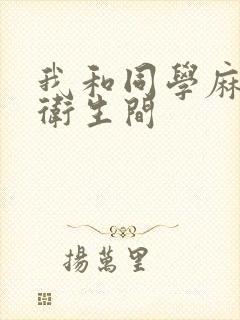 我和同學麻
衛生間
揚萬里